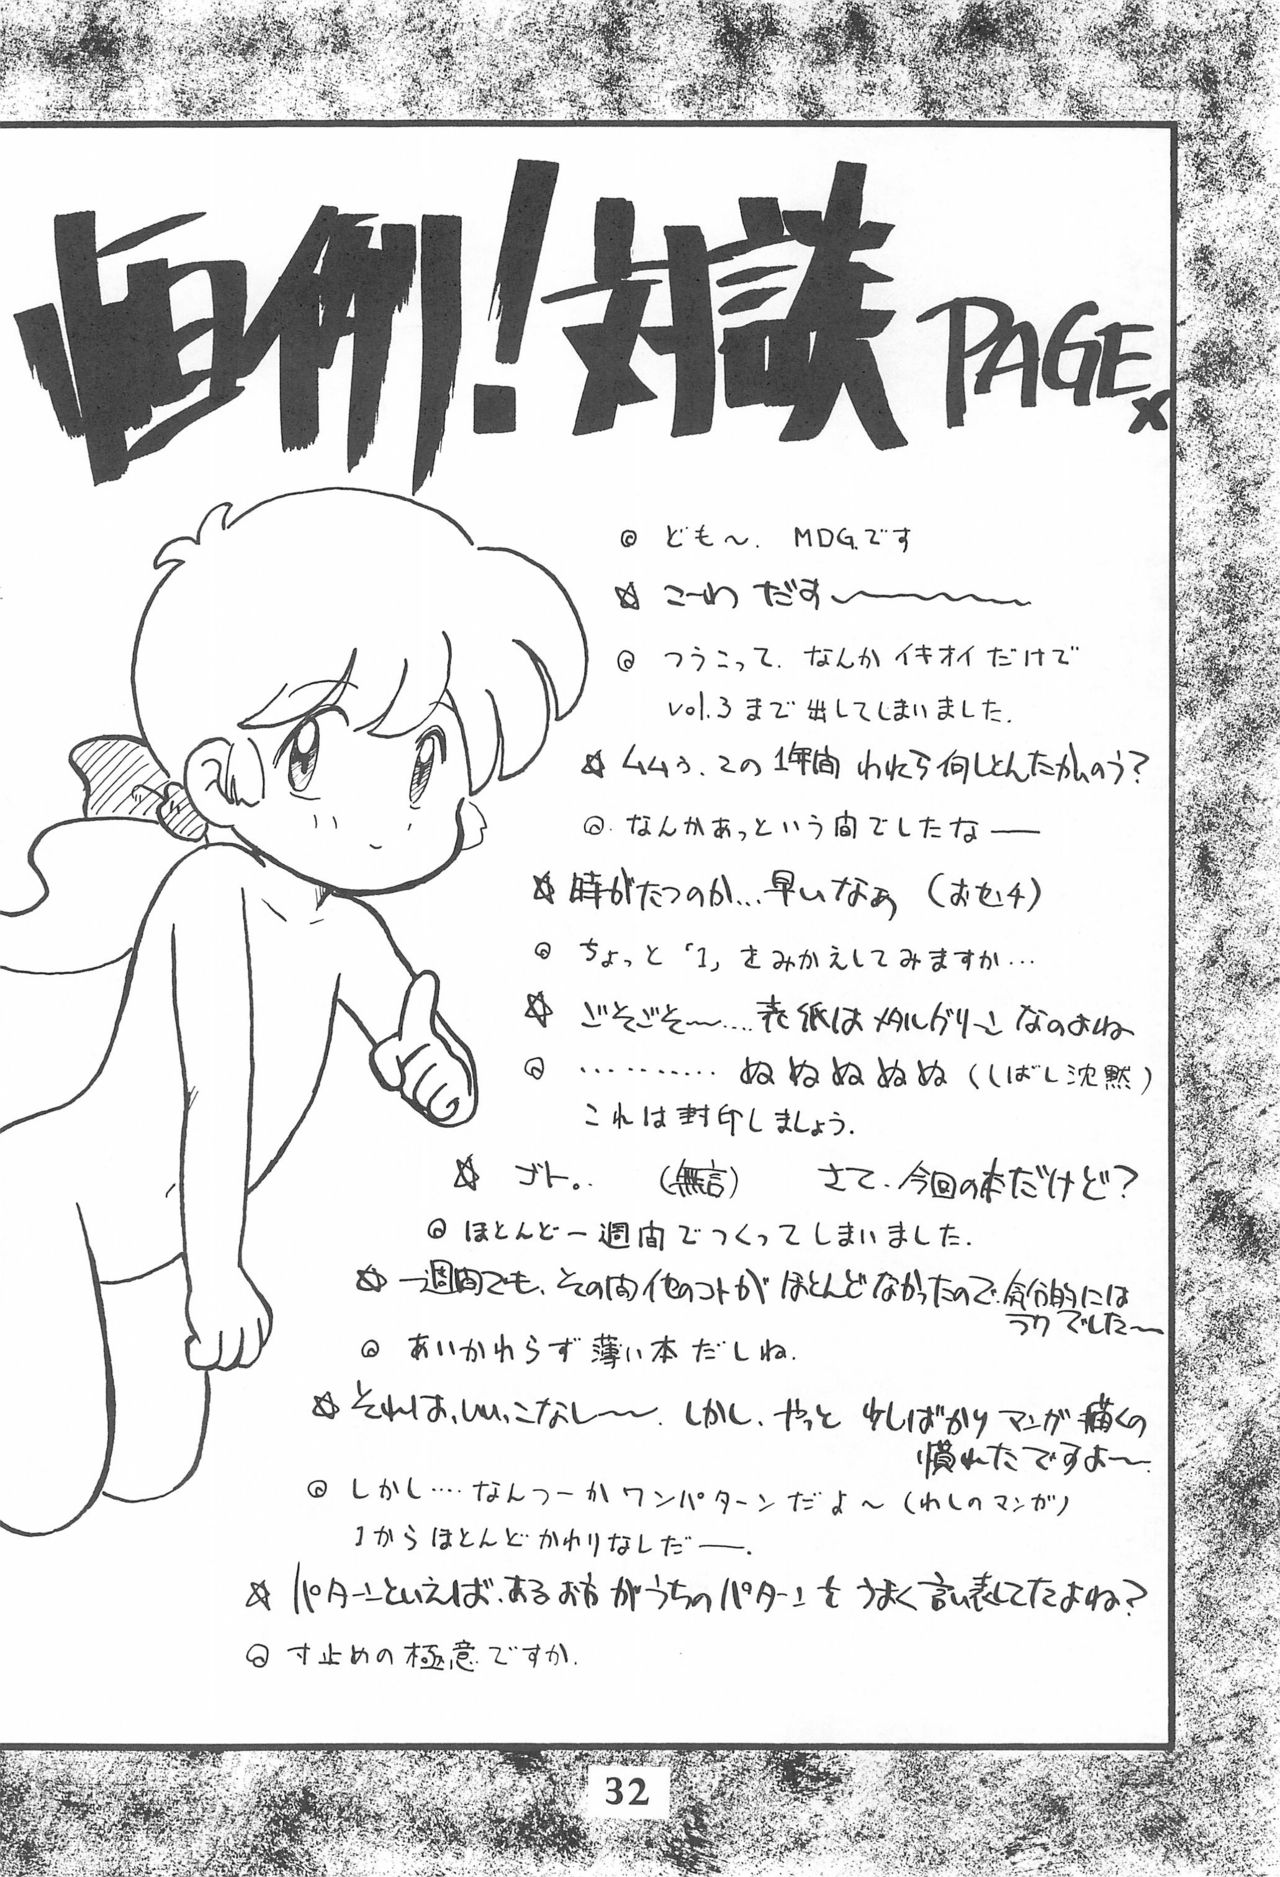 恒例!対談 PAGE
◎ ども〜. MDG.です
☆ こーわ だす〜〜〜〜
◎ つうこって. なんか イキオイ だけで
vol.3 まで 出してしまいました.
☆ ムムぅ. この 1年間 われら 何しとんたかのう?
◎. なんかあっという間でしたなー
☆ 時がたつのが... 早いなぁ (おセンチ)
◎ ちょっと「1」をみかえしてみますか...
☆ ごそごそ〜.... 表紙は メタルグリーン なのよね
◎ .......... ぬぬぬぬぬ (しばし沈黙)
これは封印しましょう.
☆ ゴト.. (無言) さて. 今回の本だけど?
◎ ほとんど一週間でつくってしまいました.
☆ 一週間でも. その間 他のコトが ほとんどなかったので. 気分的には
ラクでした〜
◎ あいかわらず 薄い本 だしね.
☆ それは.いいっこなし〜〜. しかし. やっと 少しばかり マンガ 描くの
慣れたですよ〜.
◎ しかし.... なんつーか ワンパターン だよ〜 (わしの マンガ)
1から ほとんど かわりなしだー.
☆ パターンといえば. ある お方 が うちの パターン を うまく 言い表してたよね?
◎ 寸止めの 極意 ですか.
32